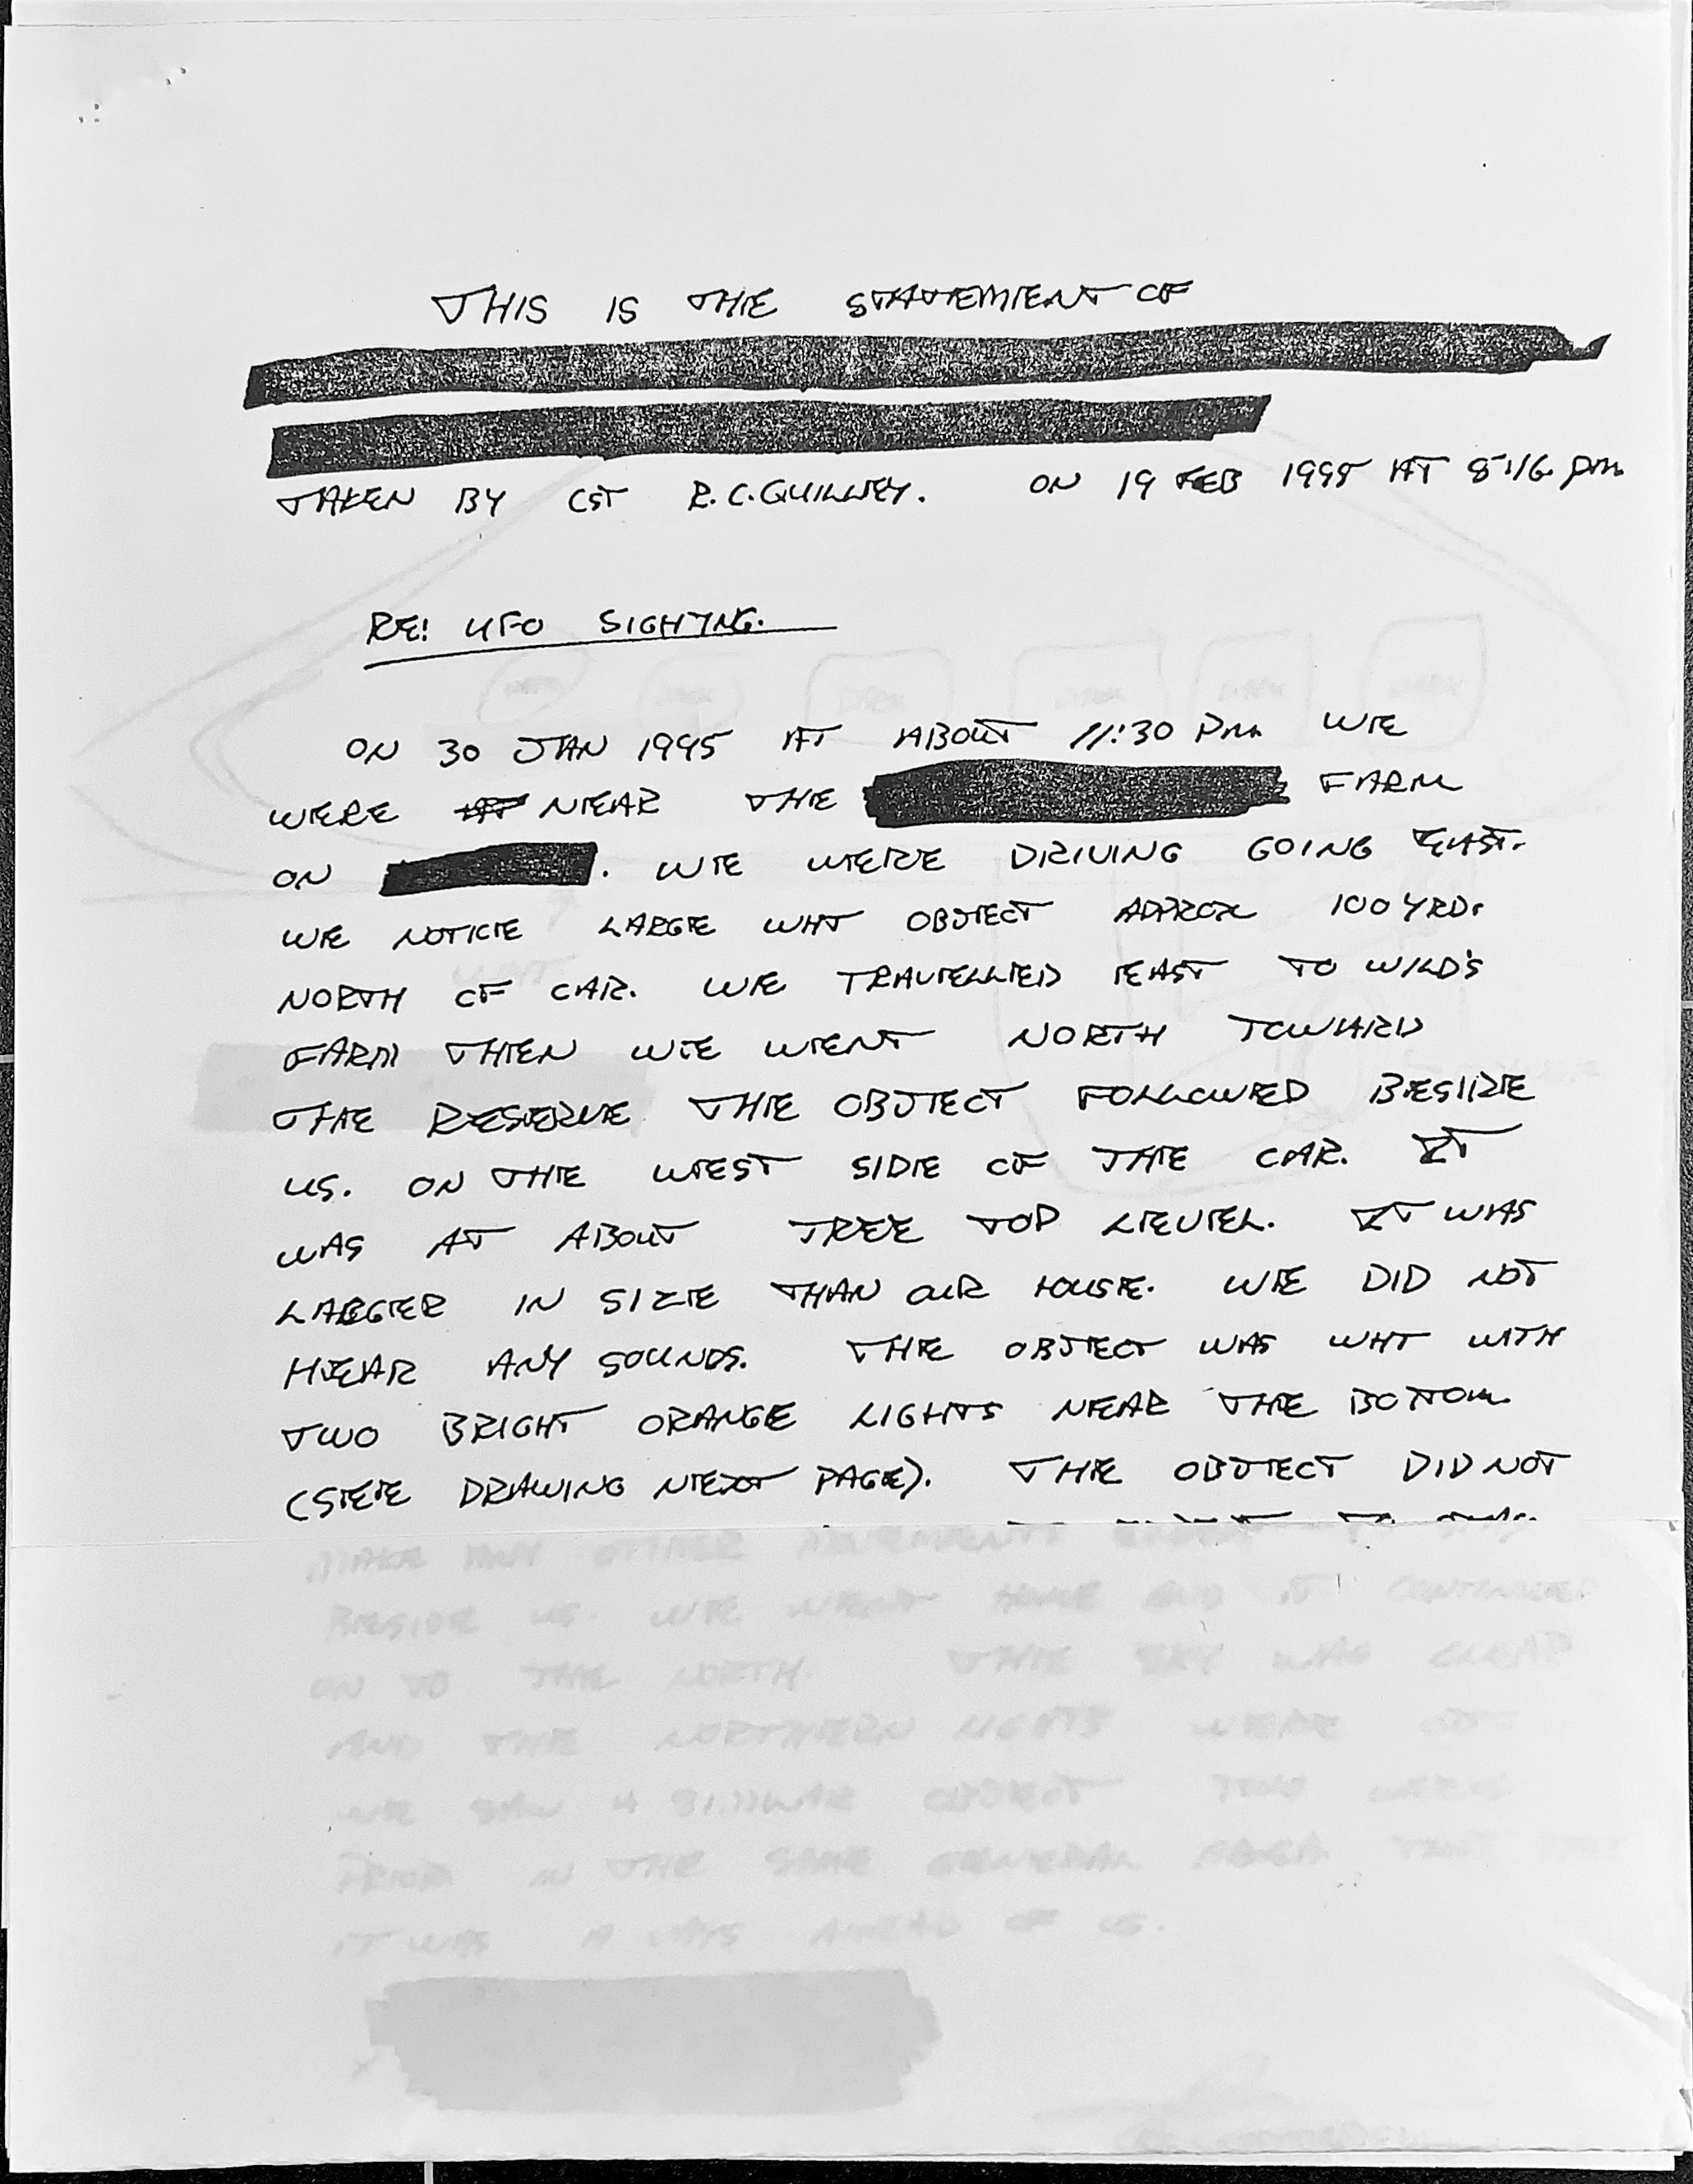 THIS IS THE STATEMENT OF
TAKEN BY CST R.C. QUILLEY. ON 19 FEB 1995 AT 8:16 pm
RE: UFO SIGHTING.
ON 30 JAN 1995 AT ABOUT 11:30 PM WE
WERE NEAR THE FARM
ON . WE WERE DRIVING GOING EAST.
WE NOTICE LARGE WHT OBJECT APPROX 100 YRD.
NORTH OF CAR. WE TRAVELLED EAST TO WILD'S
FARM THEN WE WENT NORTH TOWARD
THE RESERVE THE OBJECT FOLLOWED BESIDE
US. ON THE WEST SIDE OF THE CAR. IT
WAS AT ABOUT TREE TOP LEVEL. IT WAS
LARGER IN SIZE THAN OUR HOUSE. WE DID NOT
HEAR ANY SOUNDS. THE OBJECT WAS WHT WITH
TWO BRIGHT ORANGE LIGHTS NEAR THE BOTTOM
(SEE DRAWING NEXT PAGE). THE OBJECT DID NOT
MAKE ANY OTHER MOVEMENTS EXCEPT TO
BESIDE US. WE WENT HOME AND IT CONTINUED
ON TO THE NORTH. THE SKY WAS CLEAR
AND THE NORTHERN LIGHTS WERE OUT
WE SAW A SIMILAR OBJECT TWO WEEKS
PRIOR IN THE SAME GENERAL AREA
IT WAS A WAYS AHEAD OF US.